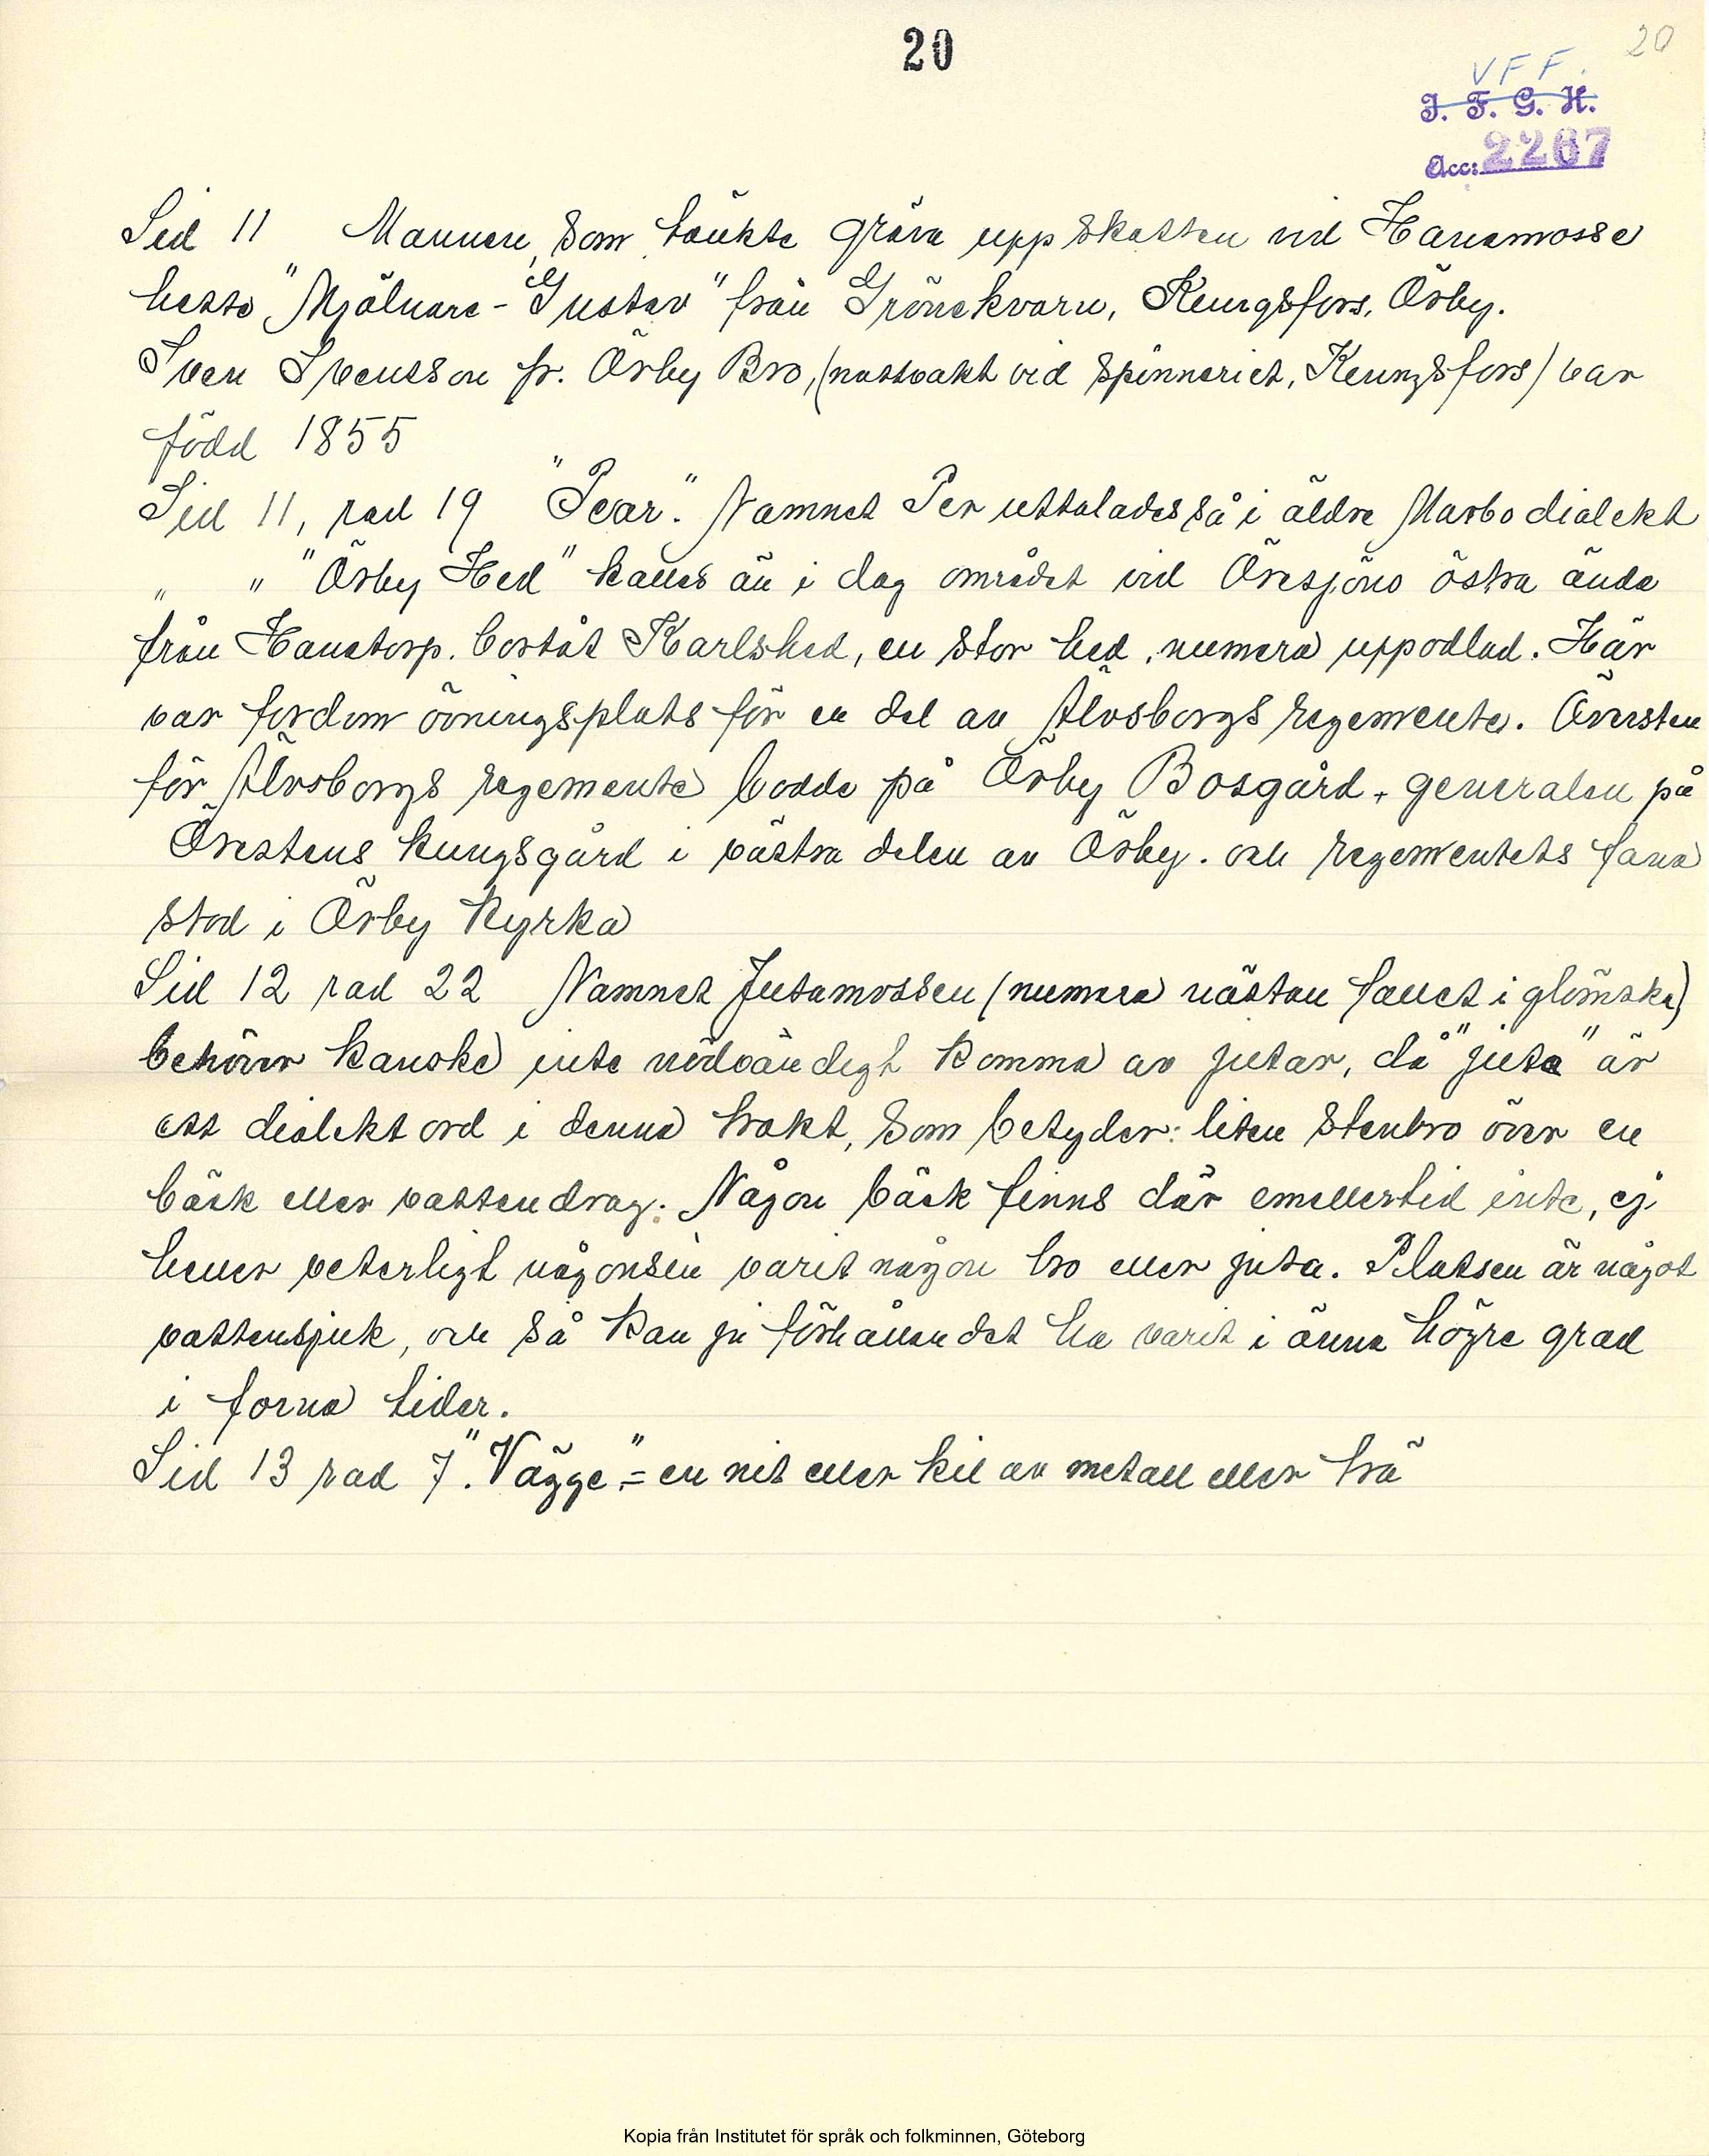 20
20
V F F.
I. F. G. H.
Acc: 2267
Sid 11 Mannen, som tänkte gräva upp skatten vid Hanamosse
hette "Mjölnare-Gustav" från Grönekvarn, Kungsfors, Örby.
Sven Svensson fr. Örby Bro, (nattvakt vid spinneriet, Kungsfors) var
född 1855
Sid 11, rad 19 "Pear". Namnet Per uttalades så i äldre Marbodialekt
" " "Örby Hed" kallas än i dag området vid Öresjöns östra ända
från Hanatorp. bortåt Karlshed, en stor hed, numera uppodlad. Här
var fordom övningsplats för en del av Älvsborgs regemente. Översten
för Älvsborgs regemente bodde på Örby Bosgård, generalen på
Örestens kungsgård i västra delen av Örby. och regementets fana
stod i Örby kyrka
Sid 12 rad 22 Namnet Jutamossen (numera nästan fallet i glömska)
behöver kanske inte nödvändigt komma av jutar, då "juta" är
ett dialektord i denna trakt, som betyder: liten stenbro över en
bäck eller vattendrag. Någon bäck finns där emellertid inte, ej
heller veterligt någonsin varit någon bro eller juta. Platsen är något
vattensjuk, och så kan ju förhållandet ha varit i ännu högre grad
i forna tider.
Sid 13 rad 7. "Vägge" = en nit eller kil av metall eller trä
Kopia från Institutet för språk och folkminnen, Göteborg